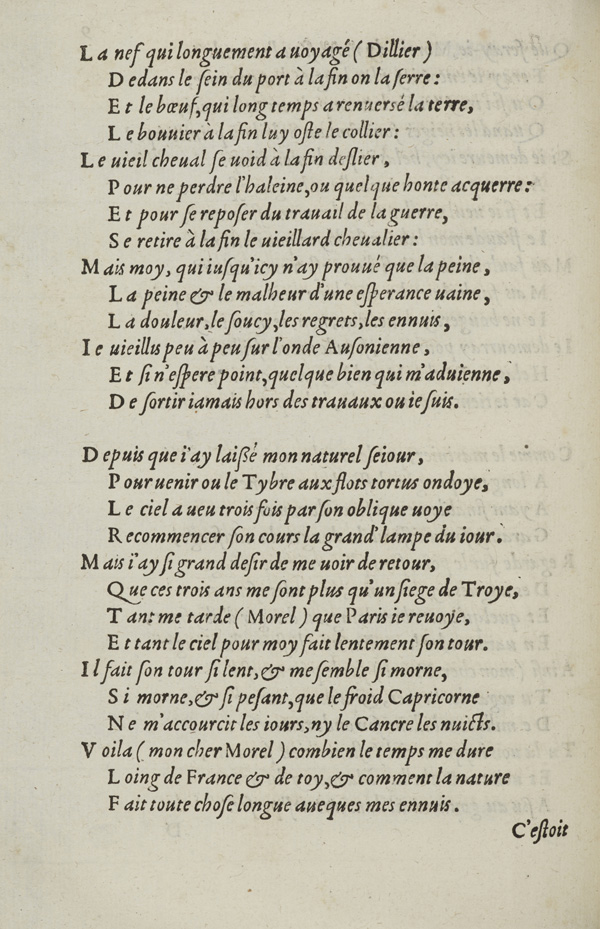 La nef qui longuement a uoyagé (Dillier)
Dedans le ſein du port à la fin on la ſerre:
Et le bœuf, qui long temps a renuersé la terre,
Le bouuier à la fin luy oſte le collier:
Le uieil cheual ſe uoid à la fin deſlier,
Pour ne perdre l'haleine, ou quelque honte acquerre:
Et pour ſe repoſer du trauail de la guerre,
Se retire à la fin le uieillard cheualier:
Mais moy, qui iuſqu'icy n'ay prouué que la peine,
La peine & le malheur d'une eſperance uaine,
La douleur, le ſoucy, les regrets, les ennuis,
Ie uieillis peu à peu ſur l'onde Auſonienne,
Et ſi n'eſpere point, quelque bien qui m'aduienne,
De ſortir iamais hors des trauaux ou ie ſuis.
Depuis que i'ay laißé mon naturel ſeiour,
Pour uenir ou le Tybre aux flots tortus ondoye,
Le ciel a ueu trois fois par ſon oblique uoye
Recommencer ſon cours la grand' lampe du iour.
Mais i'ay ſi grand deſir de me uoir de retour,
Que ces trois ans me ſont plus qu'un ſiege de Troye,
Tant me tarde (Morel) que Paris ie reuoye,
Et tant le ciel pour moy fait lentement ſon tour.
Il fait ſon tour ſi lent, & me ſemble ſi morne,
Si morne, & ſi peſant, que le froid Capricorne
Ne m'accourcit les iours, ny le Cancre les nuicts.
Voila (mon cher Morel) combien le temps me dure
Loing de France & de toy, & comment la nature
Fait toute choſe longue auecques mes ennuis.
C'eſtoit